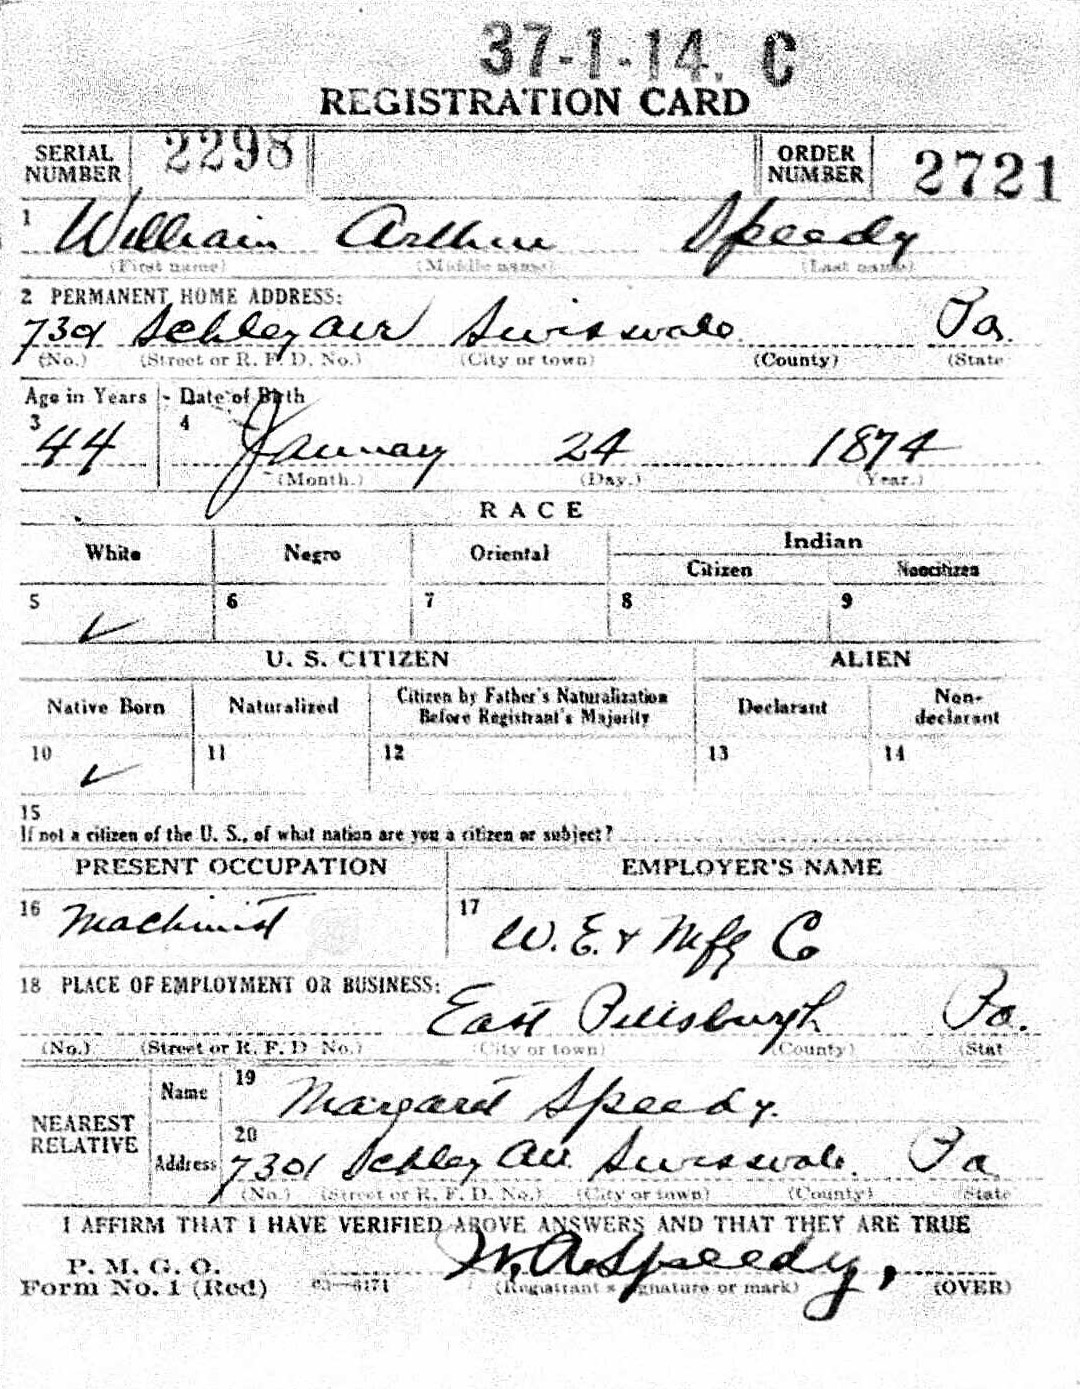 37-1-14. C
REGISTRATION CARD
SERIAL NUMBER 2298 ORDER NUMBER 2721
1 William Arthur Speedy
(First name) (Middle name) (Last name)
2 PERMANENT HOME ADDRESS:
7301 Schley Ave Swissvale Pa.
(No.) (Street or R. F. D. No.) (City or town) (County) (State
Age in Years Date of Birth
3 44 4 January 24 1874
(Month.) (Day.) (Year.)
RACE
White Negro Oriental Indian
Citizen Noncitizen
5 ✓ 6 7 8 9
U. S. CITIZEN ALIEN
Native Born Naturalized Citizen by Father's Naturalization Before Registrant's Majority Declarant Non-declarant
10 ✓ 11 12 13 14
15
If not a citizen of the U. S., of what nation are you a citizen or subject?
PRESENT OCCUPATION EMPLOYER'S NAME
16 Machinist 17 W. E. & Mfg Co
18 PLACE OF EMPLOYMENT OR BUSINESS:
East Pittsburgh Pa.
(No.) (Street or R. F. D. No.) (City or town) (County) (Stat
NEAREST RELATIVE
Name 19 Margaret Speedy.
Address 20 7301 Schley Ave. Swissvale. Pa
(No.) (Street or R. F. D. No.) (City or town) (County) (State
I AFFIRM THAT I HAVE VERIFIED ABOVE ANSWERS AND THAT THEY ARE TRUE
P. M. G. O.
Form No. 1 (Red) 03—6171 W. A. Speedy,
(Registrant's signature or mark) (OVER)